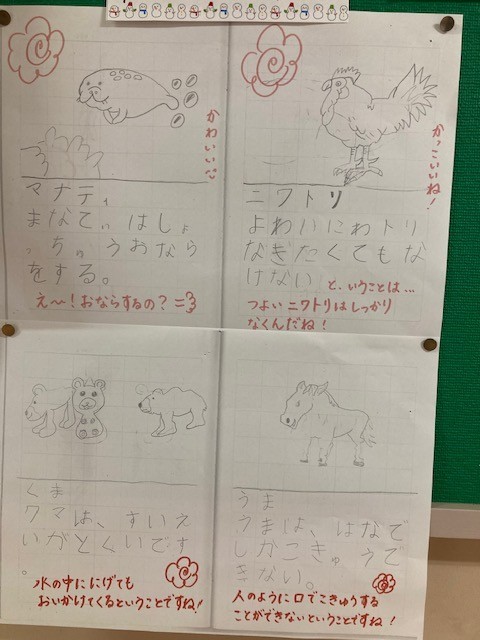 かわいい
マナティ
まなてぃはしょ
っちゅうおなら
をする。
え〜！おならするの？
かっこいいね！
ニワトリ
よわいにわトリ
なきたくてもな
けない
と、いうことは…
つよいニワトリはしっかり
なくんだね！
くま
クマは、すいえ
いがとくいです
。
水の中ににげても
おいかけてくるということですね！
うま
うまは、はなで
しかこきゅうで
きない。
人のように口でこきゅうする
ことができないということですね！